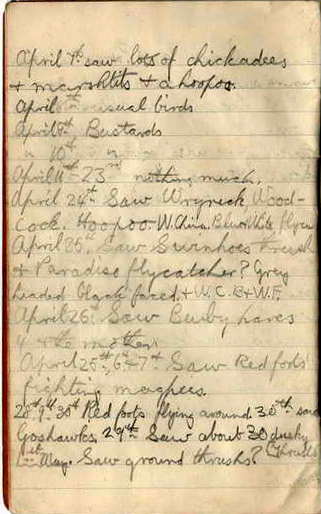 April 7th saw lots of chickadees
& marshtits & a hoopoo.
April usual birds
April 8th Bustards
" 10th " "
April 11th - 23rd nothing much.
April 24th Saw Wryneck Wood-
cock. Hoopoo. W. China. Blue & White flyca
April 25th Saw Swinhoes thrush
& Paradise flycatcher? Grey
headed black faced. & W.C. B & W.F.
April 26th Saw Baby hares
4 & the mother.
April 25th, 6th & 7th Saw Red foots
fighting magpees.
28th 9th 30th Red foots flying around. 30th saw
Goshawks. 29th Saw about 30 dusky
1st May. Saw ground thrushs? (thrushs